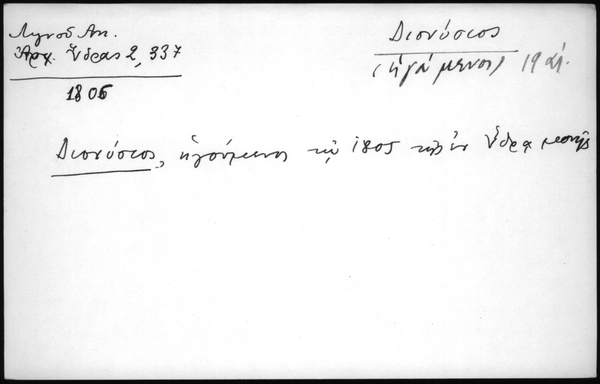 Λιγνοῦ Αν.
Ἀρχ. Ὕδρας 2, 337
1806
Διονύσιος
(ἡγούμενος) 19 αἰ.
Διονύσιος, ἡγούμενος τῷ 1805 τῆς ἐν Ὕδρᾳ μονῆς